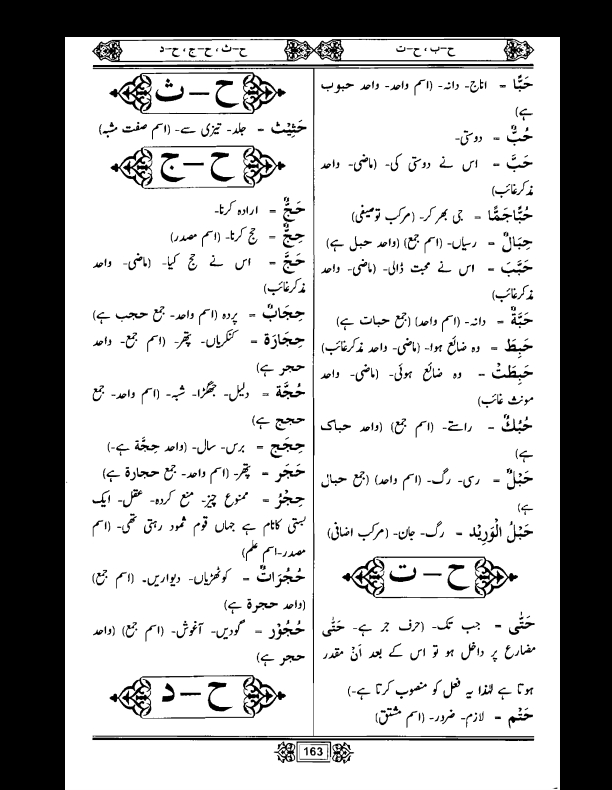 ح-ب ، ح-ت
ح-ث ، ح-ج، ح-د
حَبًّا = اناج- دانہ- (اسم واحد- واحد حبوب
ہے)
حُبٌّ = دوستی-
حَبَّ = اس نے دوستی کی- (ماضی- واحد
مذکر غائب)
حُبًّاجَمًّا = جی بھر کر- (مرکب توصیفی)
حِبَالٌ = رسیاں- (اسم جمع) (واحد حبل ہے)
حَبَّبَ = اس نے محبت ڈالی- (ماضی- واحد
مذکر غائب)
حَبَّةٌ = دانہ- (اسم واحد) (جمع حبات ہے)
حَبِطَ = وہ ضائع ہوا- (ماضی- واحد مذکر غائب)
حَبِطَتْ - وہ ضائع ہوئی- (ماضی- واحد
مونث غائب)
حُبُكٌ - راستے- (اسم جمع) (واحد حباک
ہے)
حَبْلٌ - رسی- رگ- (اسم واحد) (جمع حبال
ہے)
حَبْلُ الْوَرِيْد = رگ- جان- (مرکب اضافی)
ح – ت
حَتّٰى = جب تک- (حرف جر ہے- حَتّٰى
مضارع پر داخل ہو تو اس کے بعد اَنْ مقدر
ہوتا ہے لہٰذا یہ فعل کو منصوب کرتا ہے-)
حَتْم = لازم- ضرور- (اسم مشتق)
ح – ث
حَثِيْث = جلد- تیزی سے- (اسم صفت مشبہ)
ح – ج
حَجٌّ = ارادہ کرنا-
حِجٌّ = حج کرنا- (اسم مصدر)
حَجَّ = اس نے حج کیا- (ماضی- واحد
مذکر غائب)
حِجَابٌ = پردہ (اسم واحد- جمع حجب ہے)
حِجَارَة = کنکریاں- پتھر- (اسم جمع- واحد
حجر ہے)
حُجَّة = دلیل- جھگڑا- شبہ- (اسم واحد- جمع
حجج ہے)
حِجَج = برس- سال- (واحد حِجَّة ہے-)
حَجَر = پتھر- (اسم واحد- جمع حجارة ہے)
حِجْرٌ = ممنوع چیز- منع کردہ- عقل- ایک
بستی کا نام ہے جہاں قوم ثمود رہتی تھی- (اسم
مصدر-اسم علم)
حُجُرَاتٌ = کوٹھڑیاں- دیواریں- (اسم جمع)
(واحد حجرة ہے)
حُجُوْر = گودیں- آغوش- (اسم جمع) (واحد
حجر ہے)
ح – د
163